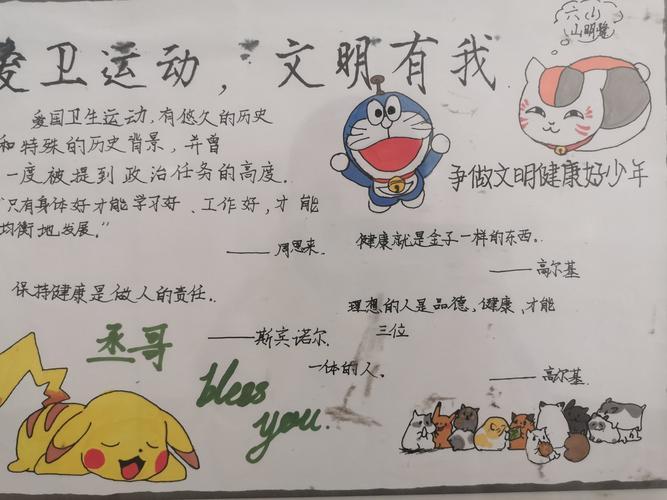 爱卫运动，文明有我
六(1)
山明鹭
爱国卫生运动，有悠久的历史
和特殊的历史背景，并曾
一度被提到政治任务的高度.
争做文明健康好少年
“只有身体好才能学习好、工作好，才能
均衡地发展.”
——周恩来.
健康就是金子一样的东西。
——高尔基
保持健康是做人的责任.
理想的人是品德，健康、才能
三位
丞哥
——斯宾诺尔.
一体的人.
bless
you.
——高尔基.